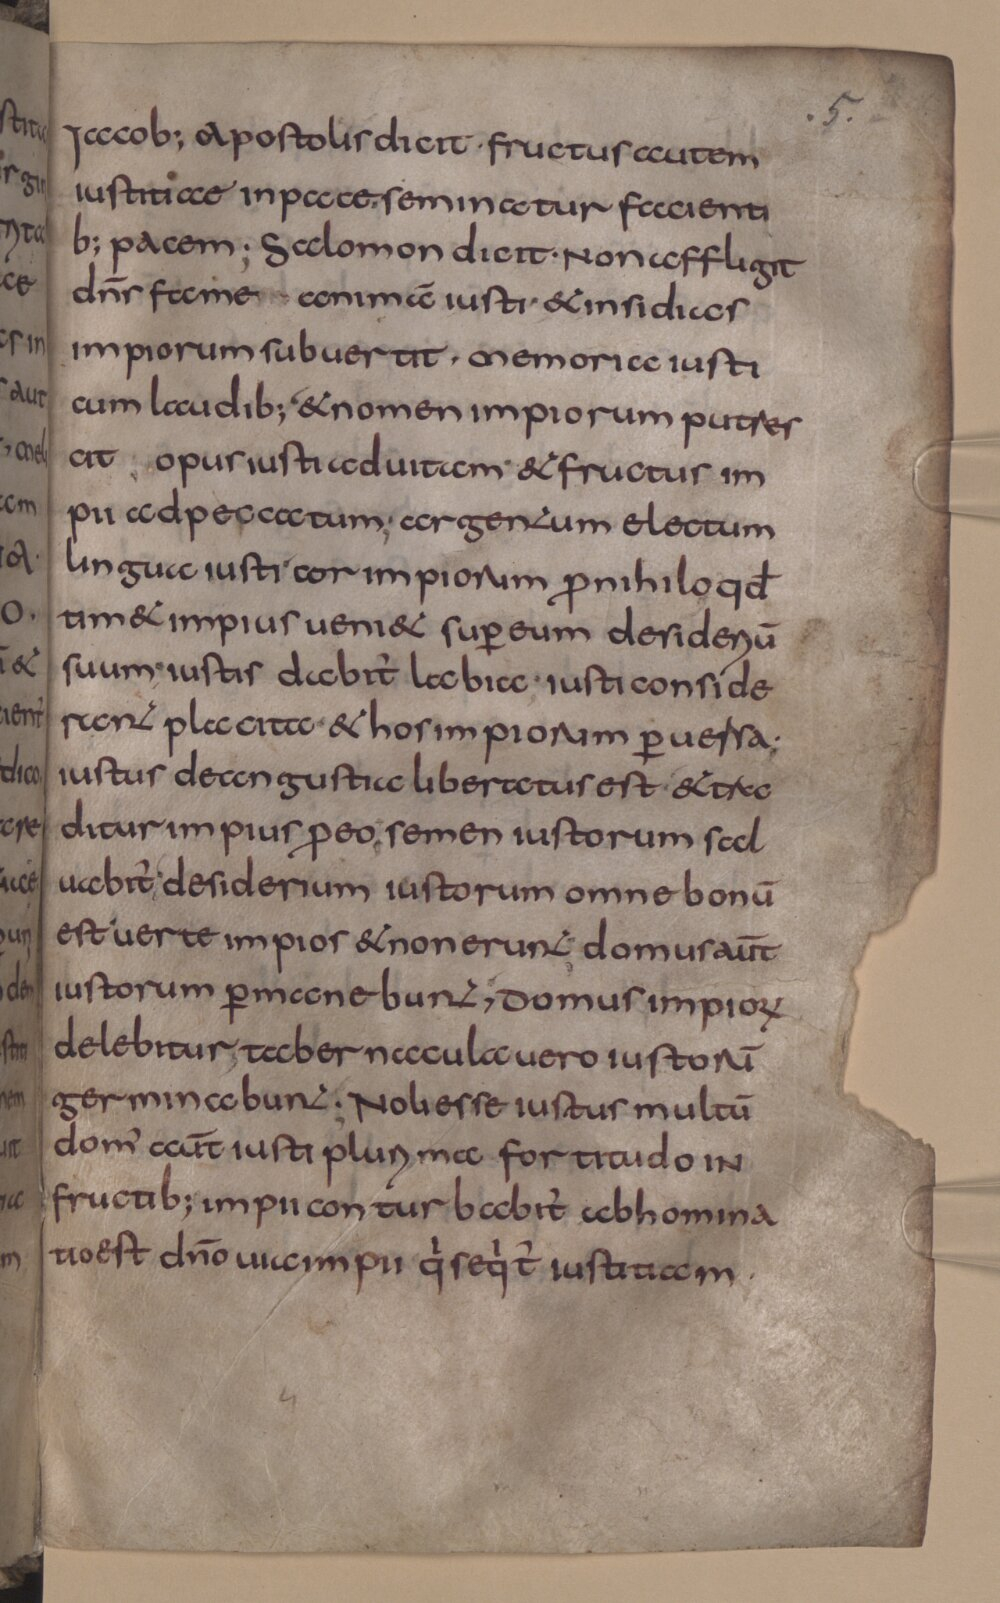 .5.
Iacob; Apostolus dicit· fructus autem
iustitiae in pace seminatur facienti
b; pacem; Salomon dicit· Non affligit
dn̄s fame animā iusti· & insidias
impiorum subuertit· memoria iusti
cum laudib; & nomen impiorum putres
cit opus iusti ad uitam & fructus im
pii ad peccatum; argentum electum
lingua iusti cor impiorum ꝓ nihilo qđ
tim& impius ueni& suꝑ eum desideriū
suum· iustis dabit̄ labia· iusti conside
rant placita & hos impiorum ꝑuersa·
iustus de angustia liberatus est· & tra
ditur impius ꝓ eo, semen iustorum sal
uabit̄; desiderium iustorum omne bonū
est uerte impios & non erunt; domus aūt
iustorum ꝑmanebunt; Domus impioꝝ
delebitur, tabernacula uero iustorū
germinabunt; Noli esse iustus multū
dom' aūt iusti plurima fortitudo IN
fructib; impii conturbabit̄ abhomina
tio est dn̄o uia impii q̇ seq̇t̄ iustitiam·